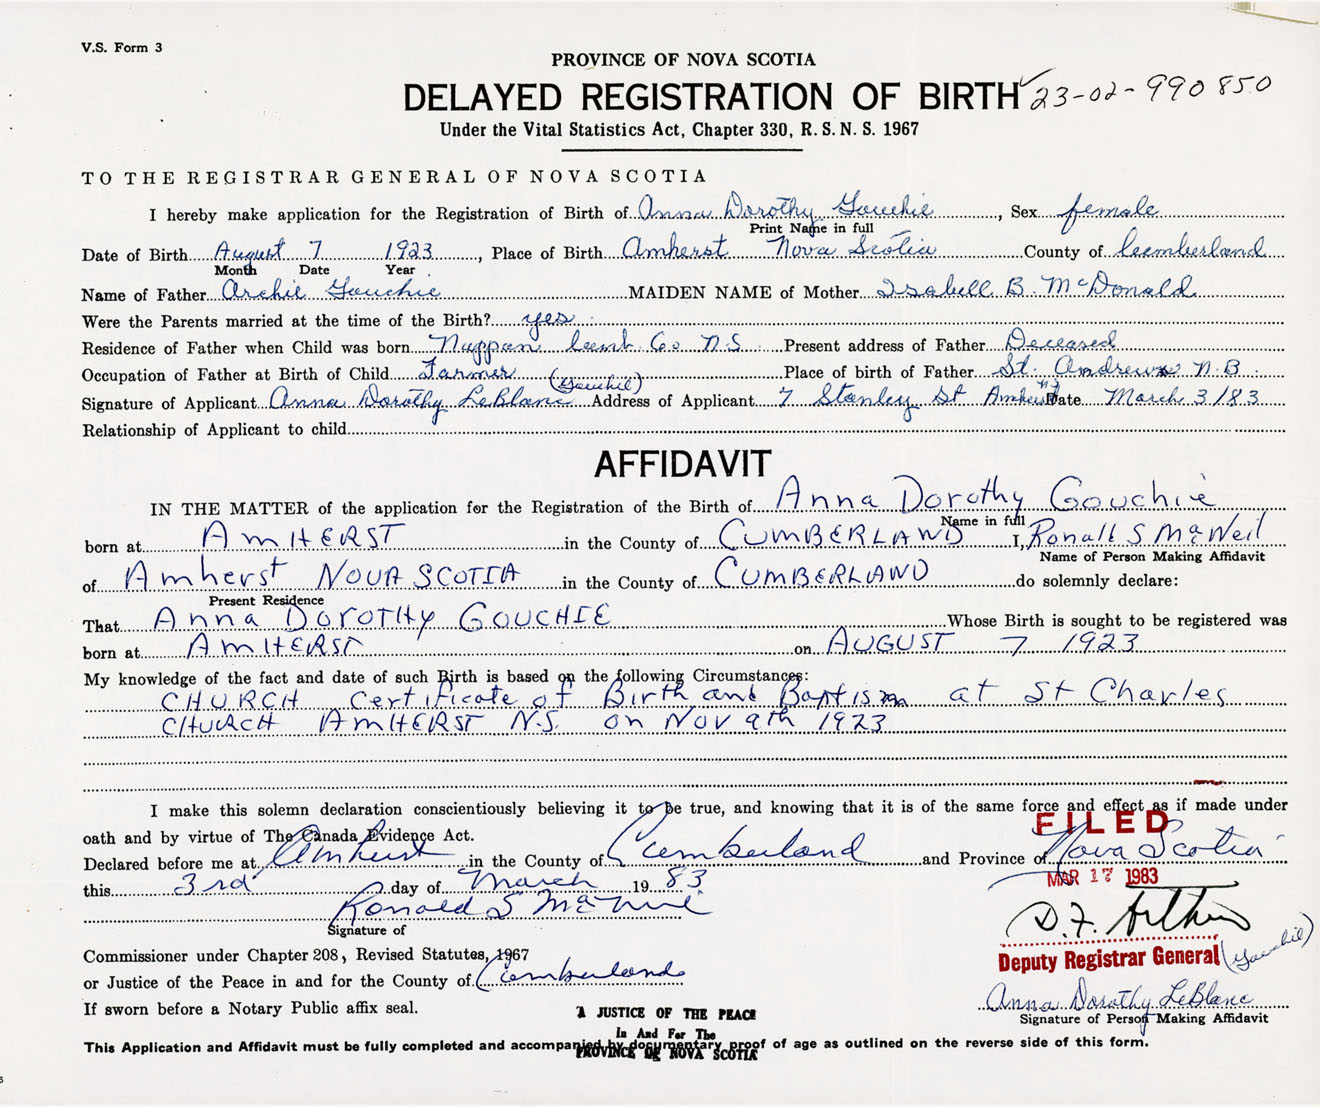 V.S. Form 3
PROVINCE OF NOVA SCOTIA
DELAYED REGISTRATION OF BIRTH 23-02-990850
Under the Vital Statistics Act, Chapter 330, R. S. N. S. 1967
TO THE REGISTRAR GENERAL OF NOVA SCOTIA
I hereby make application for the Registration of Birth of Anna Dorothy Gouchie, Sex female
Print Name in full
Date of Birth August 7 1923, Place of Birth Amherst Nova Scotia County of Cumberland
Month Date Year
Name of Father Archie Gouchie MAIDEN NAME of Mother Isabell B. McDonald
Were the Parents married at the time of the Birth? yes
Residence of Father when Child was born Nappan Cumb. Co N.S Present address of Father Deceased
Occupation of Father at Birth of Child Farmer Place of birth of Father St. Andrews N.B
(Gouchie)
Signature of Applicant Anna Dorothy LeBlanc Address of Applicant 7 Stanley St Amherst NS Date March 3/83
Relationship of Applicant to child
AFFIDAVIT
IN THE MATTER of the application for the Registration of the Birth of Anna Dorothy Gouchie
Name in full
born at AMHERST in the County of CUMBERLAND I, Ronald S McNeil
Name of Person Making Affidavit
of Amherst NOVA SCOTIA in the County of CUMBERLAND do solemnly declare:
Present Residence
That Anna DOROTHY GOUCHIE Whose Birth is sought to be registered was
born at AMHERST on AUGUST 7 1923
My knowledge of the fact and date of such Birth is based on the following Circumstances:
CHURCH Certificate of Birth and Baptism at St Charles
CHURCH AMHERST N.S. on Nov 9th 1923
I make this solemn declaration conscientiously believing it to be true, and knowing that it is of the same force and effect as if made under
oath and by virtue of The Canada Evidence Act.
FILED
Declared before me at Amherst in the County of Cumberland and Province of Nova Scotia
this 3rd day of March 1983
MAR 17 1983
Ronald S McNeil
Signature of
D.F.
Commissioner under Chapter 208, Revised Statutes, 1967
Deputy Registrar General (Gouchie)
or Justice of the Peace in and for the County of Cumberland
Anna Dorothy LeBlanc
If sworn before a Notary Public affix seal.
Signature of Person Making Affidavit
A JUSTICE OF THE PEACE
In And For The
PROVINCE OF NOVA SCOTIA
This Application and Affidavit must be fully completed and accompanied by documentary proof of age as outlined on the reverse side of this form.